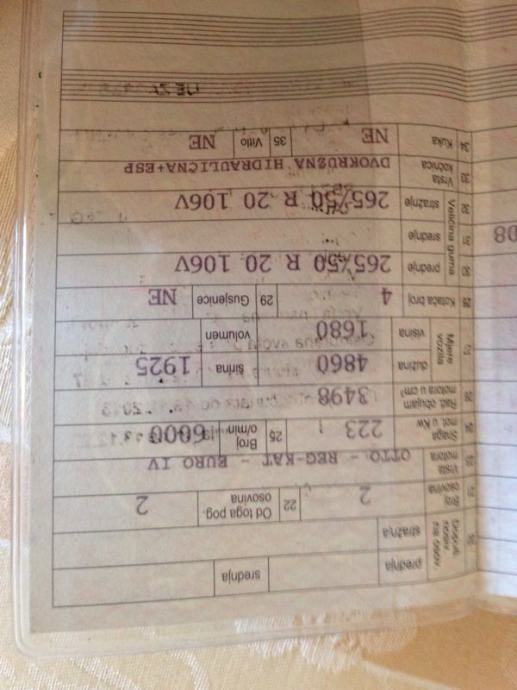 prednja srednja
stražnja
Broj osovina 2 22 Od toga pog. osovina 2
Vrsta motora OTTO - REG-KAT - EURO IV
24 Snaga mot. u Kw 223 25 Broj o/min. 6600
26 Rad. obujam motora u cm³ 3498
Mjere vozila dužina 4860 širina 1925
visina 1680 volumen
28 Kotača broj 4 29 Gusjenice NE
30 Veličina guma prednje 265/50 R 20 106V
31 srednje
32 stražnje 265/50 R 20 106V
33 Vrsta kočnica DVOKRUŽNA HIDRAULIČNA+ESP
34 Kuka NE 35 Vitlo NE
08